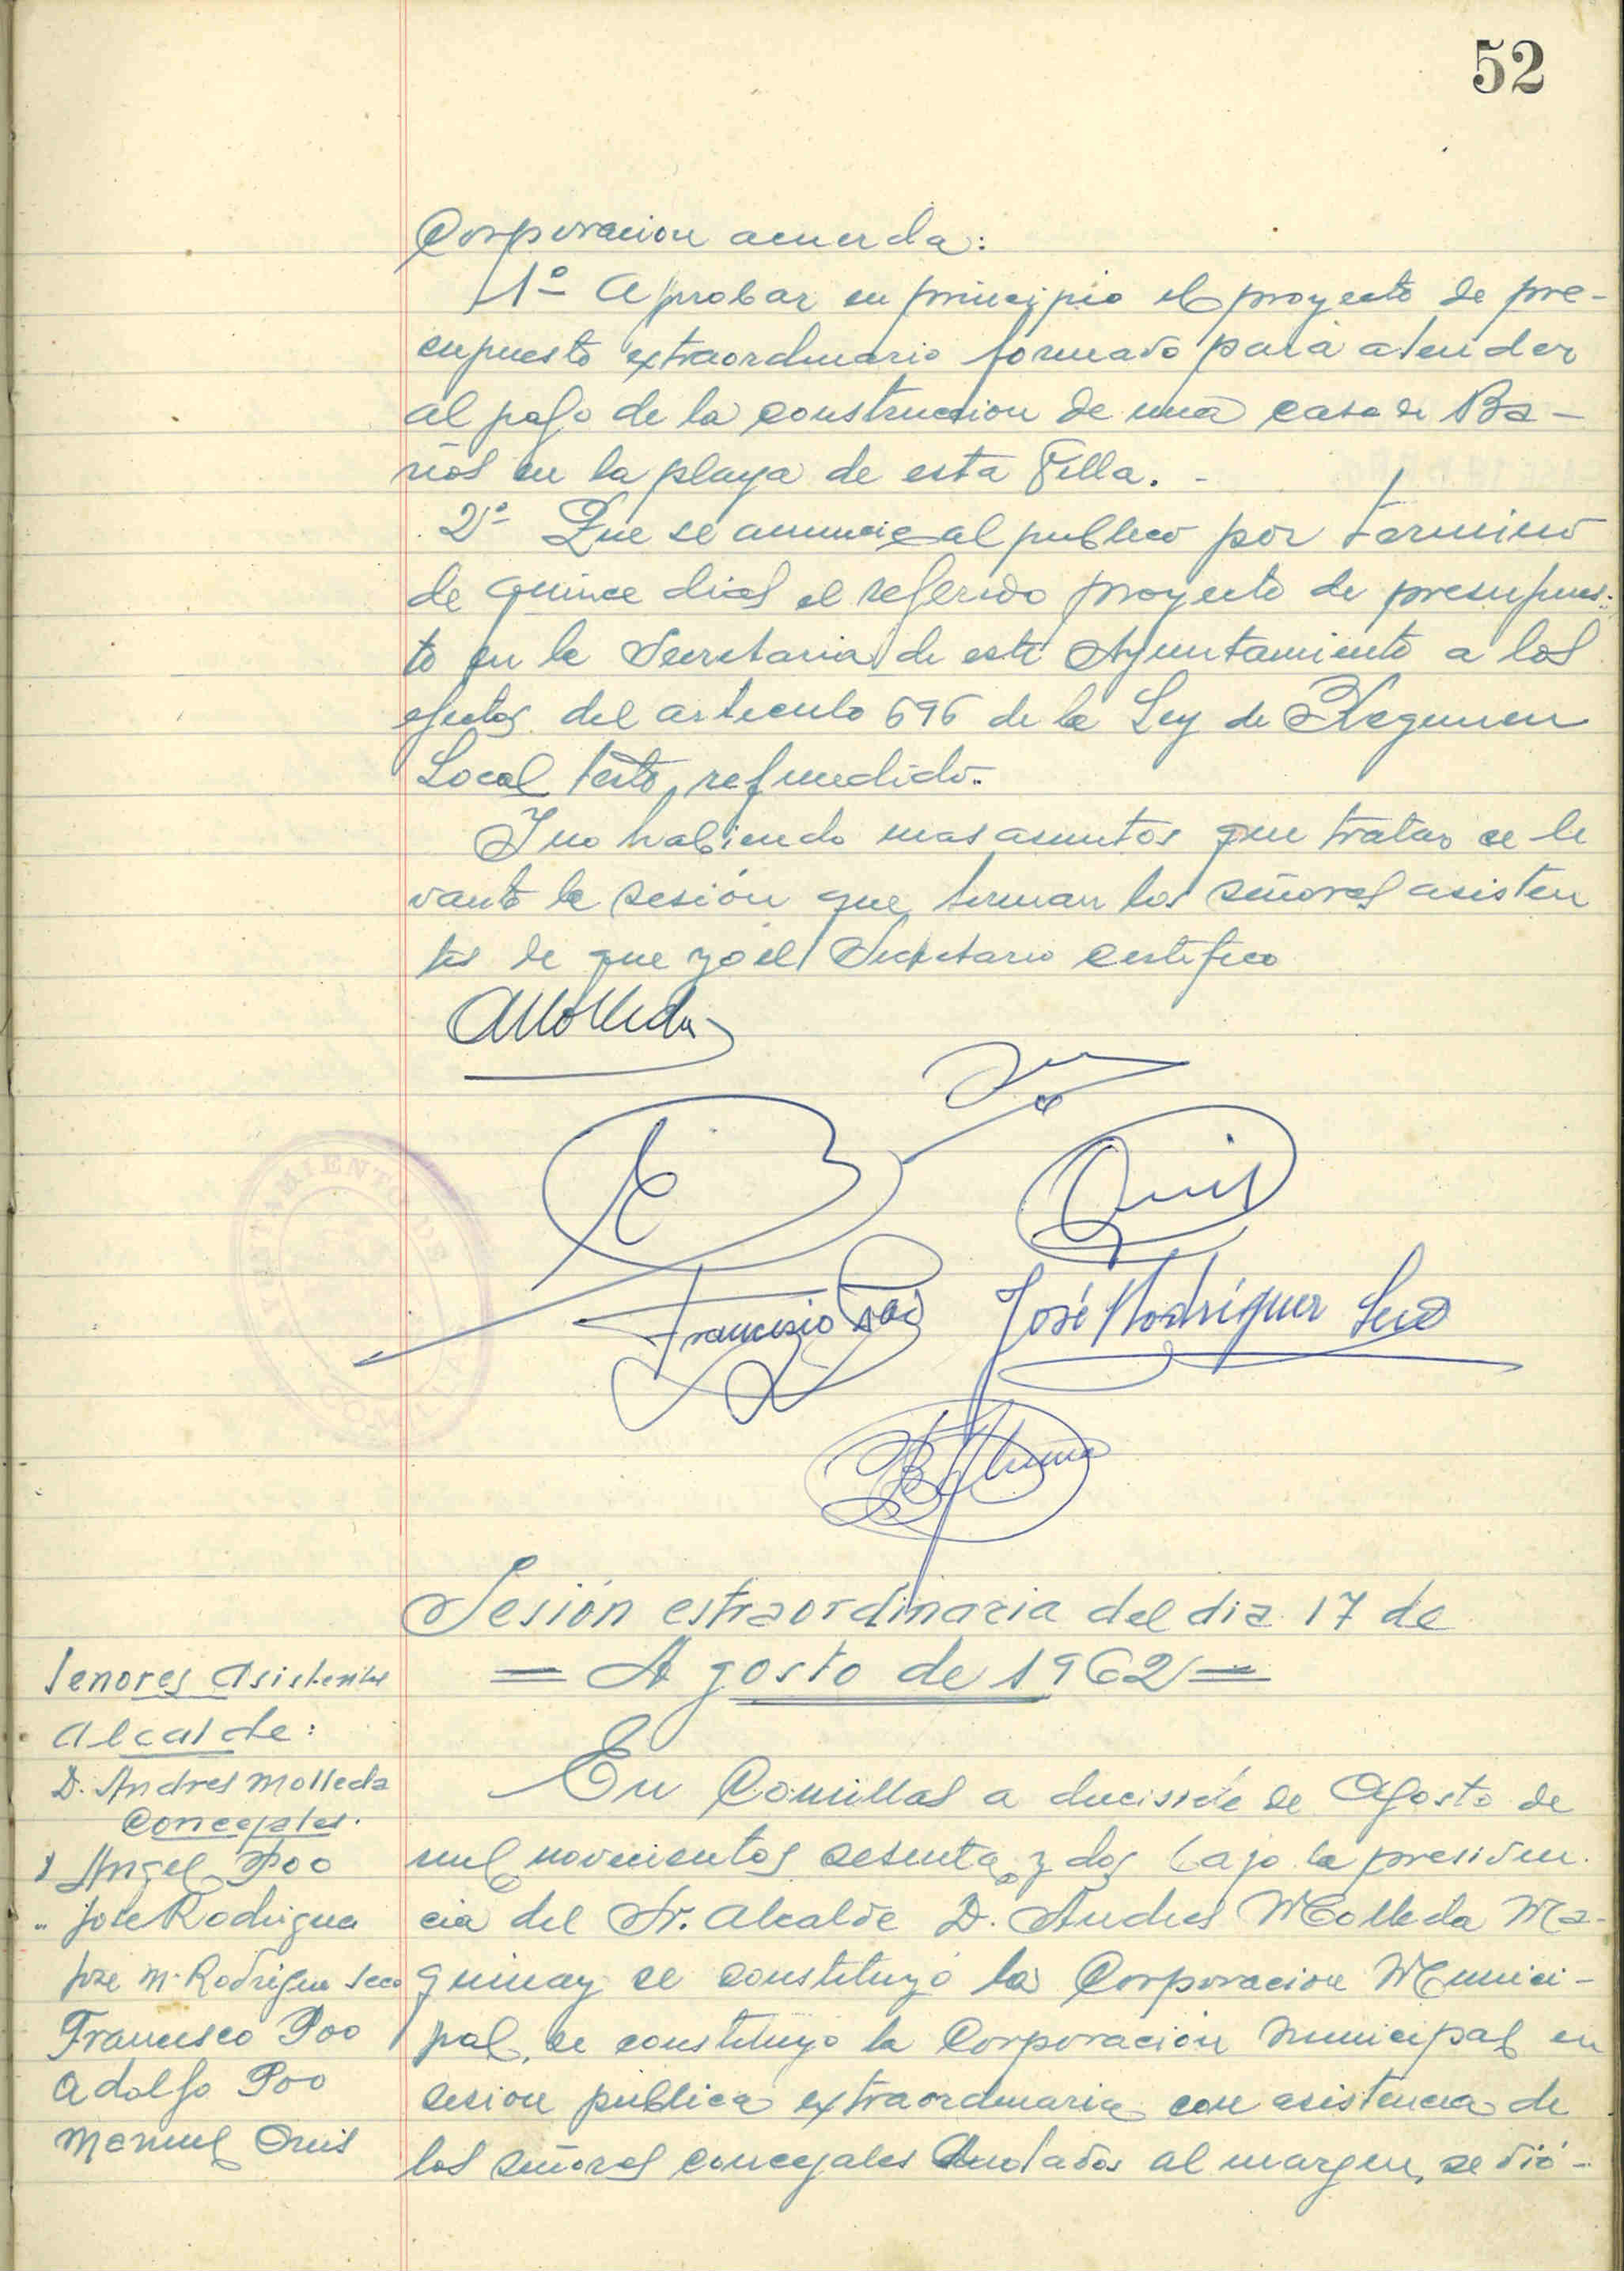 52
Corporacion acuerda:
1º Aprobar en principio el proyecto de pre-
supuesto extraordinario formado para atender
al pago de la construccion de una casa de Ba-
ños en la playa de esta Villa. -
2º Que se anuncie al publico por termino
de quince dias el referido proyecto de presupues-
to en la Secretaria de este Ayuntamiento a los
efectos del articulo 696 de la Ley de Regimen
Local texto refundido.
Y no habiendo mas asuntos que tratar se le
vantó la sesión que firman los señores asisten
tes de que yo el Secretario certifico
AMolleda
AYUNTAMIENTO DE COMILLAS
Quis
Francisco Poo José Rodríguez Seco
Sesión estraordinaria del dia 17 de
= Agosto de 1962 =
Señores Asistentes
Alcalde:
D. Andres Molleda
Concejales.
D Angel Poo
" Jose Rodriguez
Jose M. Rodriguez Seco
Francisco Poo
Adolfo Poo
Manuel Quis
En Comillas a diecisiete de Agosto de
mil novecientos sesenta y dos bajo la presiden-
cia del Sr. Alcalde D. Andres Molleda Ma-
quinay se constituyó la Corporacion Munici-
pal, se constituyo la Corporación Municipal en
sesion publica extraordinaria con asistencia de
los señores concejales Anotados al margen, se dió -